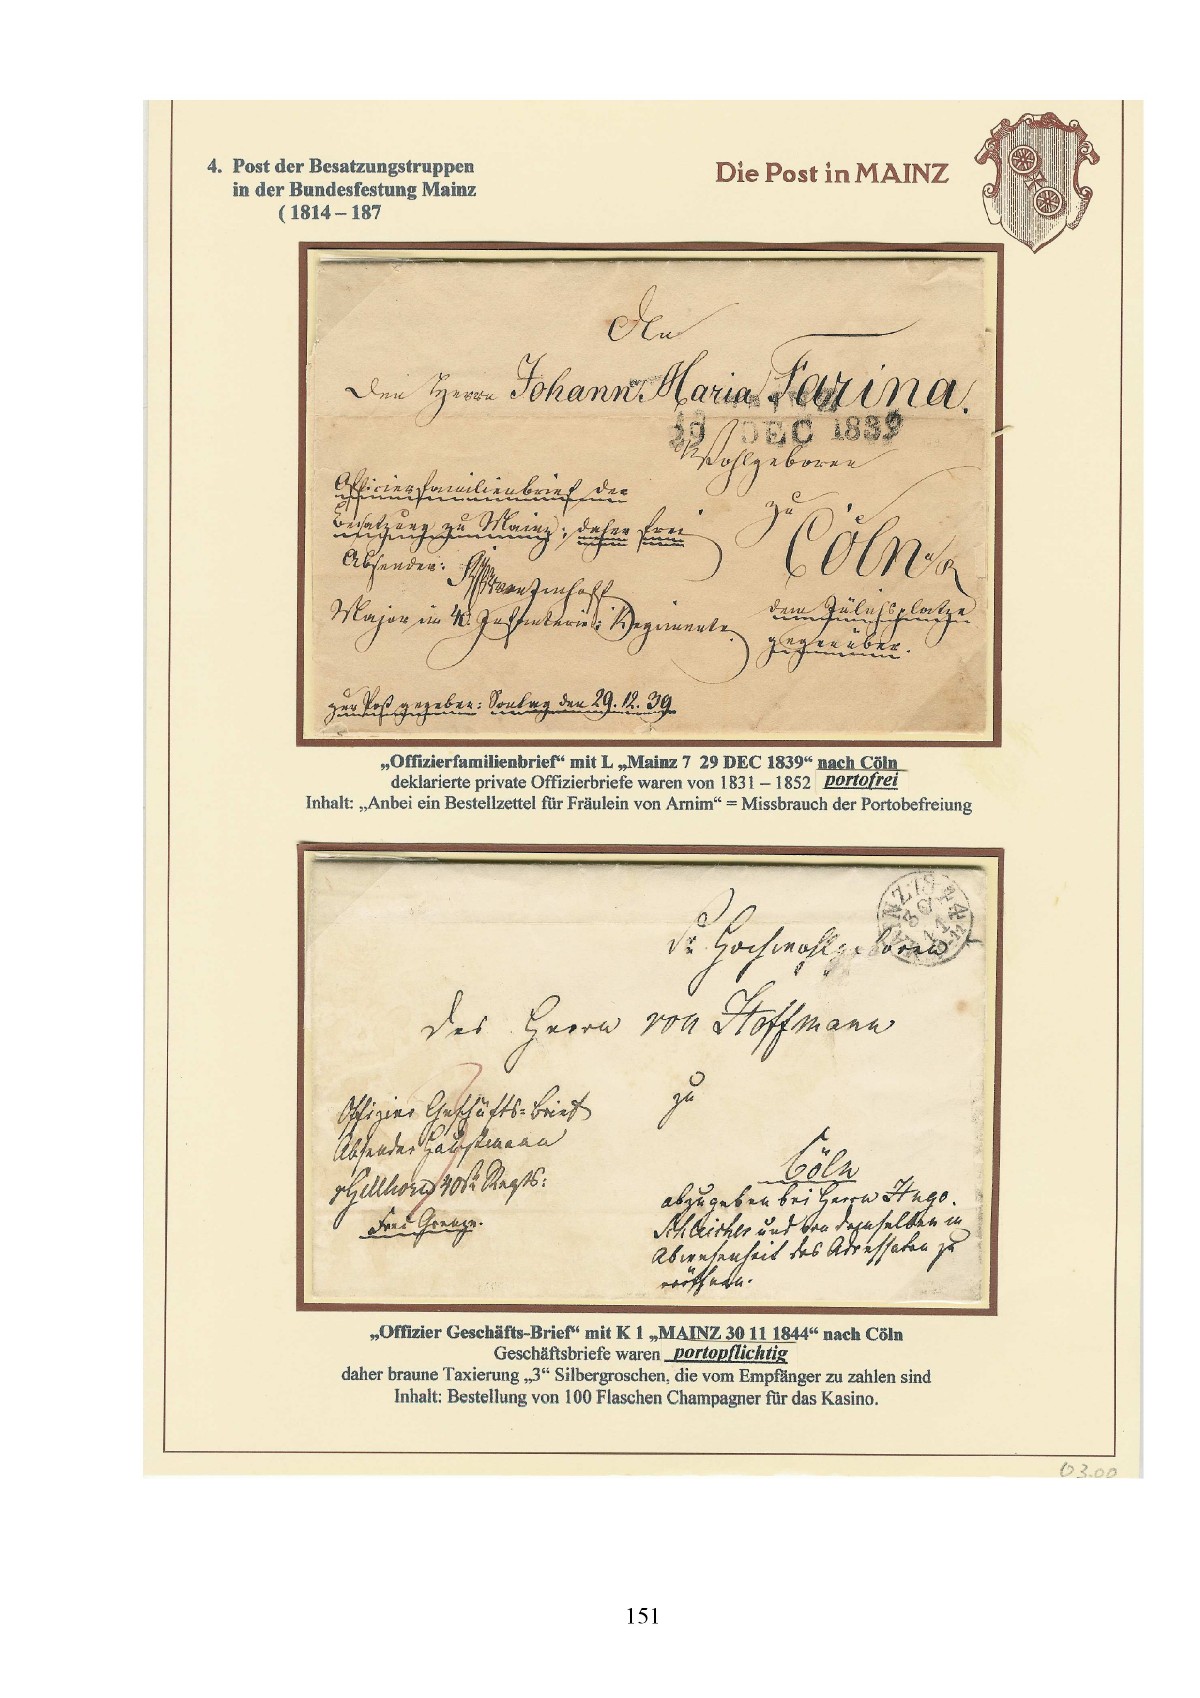 4. Post der Besatzungstruppen
in der Bundesfestung Mainz
( 1814 – 187
Die Post in MAINZ
An
den Herrn Johann Maria Farina.
29 DEC 1839
Wohlgeboren
zu
Cöln a/R
dem Jülichsplatze
gegenüber.
Officiersfamilienbrief der
Besatzung zu Mainz; daher frei
Absender:
Major im Infanterie: Regimente.
zur Post gegeben: Sontag den 29.12.39
„Offizierfamilienbrief“ mit L „Mainz 7 29 DEC 1839“ nach Cöln
deklarierte private Offizierbriefe waren von 1831 – 1852 portofrei
Inhalt: „Anbei ein Bestellzettel für Fräulein von Arnim“ = Missbrauch der Portobefreiung
MAINZ 1844
30
11
Sr. Hochwohlgeboren
des Herrn von Hoffmann
zu
Cöln
abzugeben bei Herrn Hugo
Schleicher und von demselben in
Abwesenheit des Adressaten zu
eröffnen.
Offizier Geschäfts-Brief
Absender Hauptmann
v Hellhorn 40st Regts:
Frei Grenze.
3
„Offizier Geschäfts-Brief“ mit K 1 „MAINZ 30 11 1844“ nach Cöln
Geschäftsbriefe waren portopflichtig
daher braune Taxierung „3“ Silbergroschen, die vom Empfänger zu zahlen sind
Inhalt: Bestellung von 100 Flaschen Champagner für das Kasino.
03.00
151